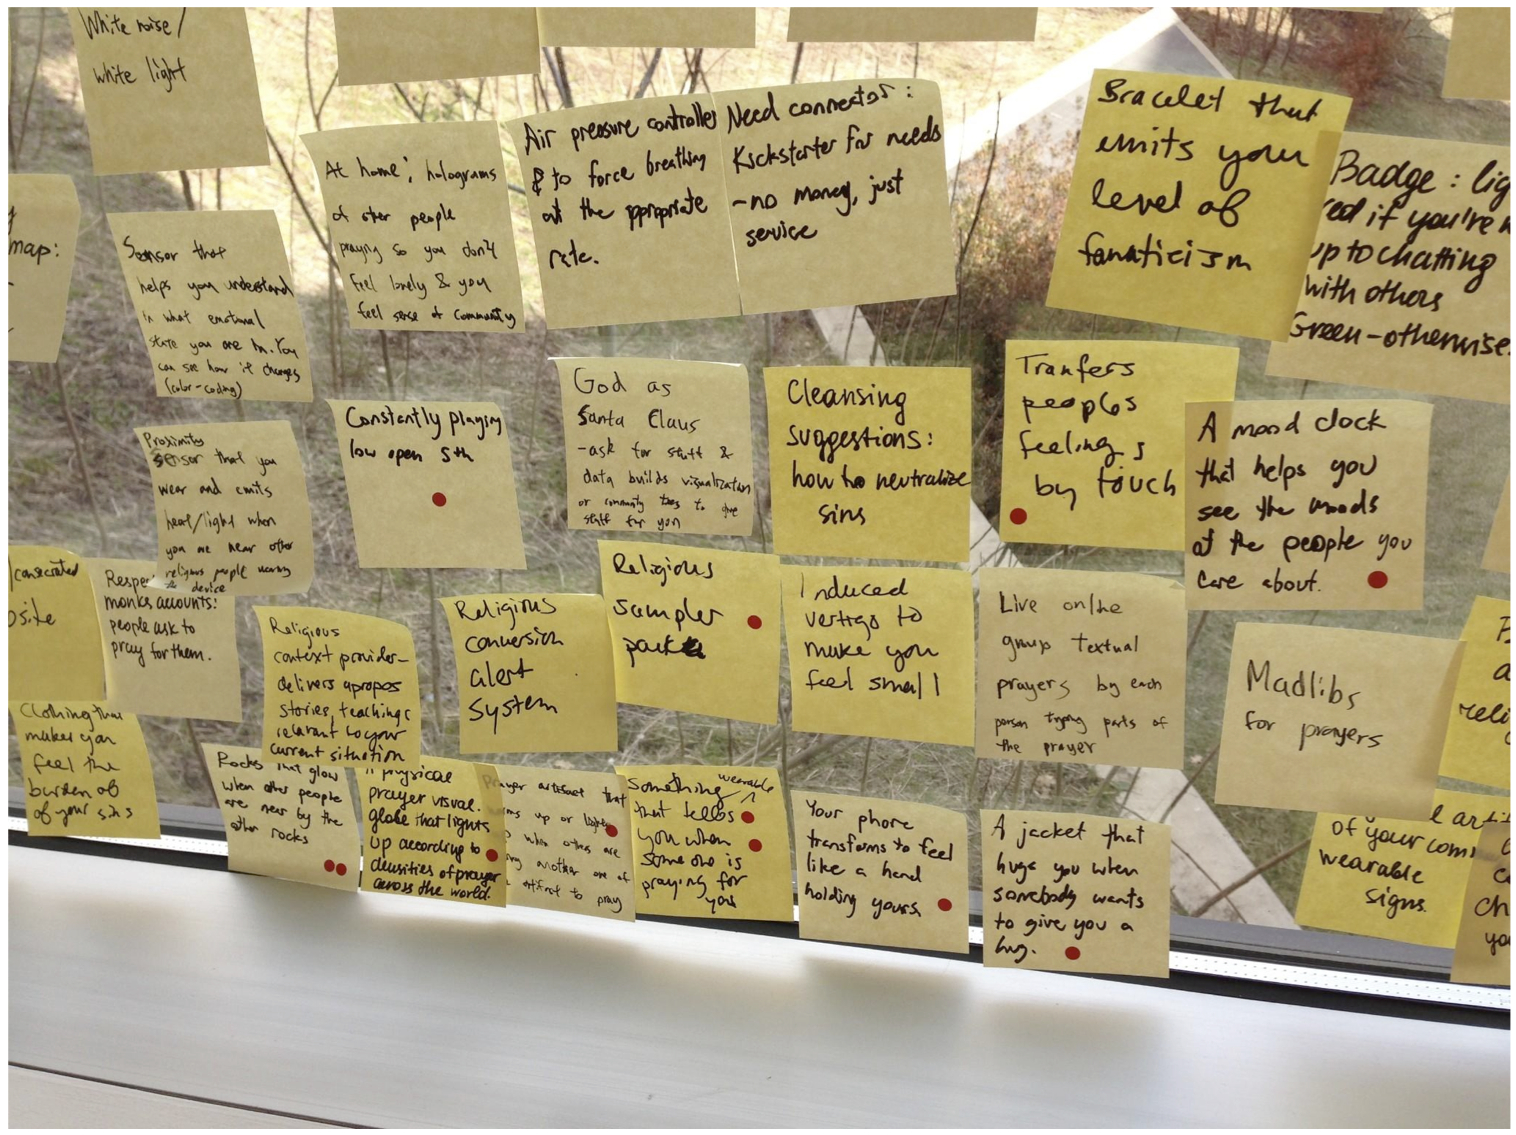 White noise/
white light
At home: holograms
of other people
praying so you don't
feel lonely & you
feel sense of community
Air pressure controller
& to force breathing
at the ppropriate
rate.
Need connector:
Kickstarter for needs
- no money, just
service
Bracelet that
emits your
level of
fanaticism
Badge: lig
red if you're n
up to chatting
with others
Green-otherwise.
map:
Sensor that
helps you understand
in what emotional
state you are in. You
can see how it changes
(color-coding)
Proximity
sensor that you
wear and emits
heat/light when
you are near other
religious people wearing
device
Constantly playing
low open 5th
God as
Santa Claus
-ask for stuff &
data builds visualization
or community tries to give
stuff for you
Cleansing
suggestions:
how to neutralize
sins
Tranfers
peoples
feelings
by touch
A mood clock
that helps you
see the moods
of the people you
care about.
consecrated
osite
Respe
monks accounts:
people ask to
pray for them.
Religious
context provider-
delivers apropos
stories, teachings
relavant to your
current situation
Religious
conversion
alert
system
Religious
sampler
pack
Induced
vertigo to
make you
feel small
Live online
group textual
prayers by each
person typing parts of
the prayer
Madlibs
for prayers
reli
Clothing that
makes you
feel the
burden of
of your sins
Rocks that glow
when other people
are near by the
other rocks
physical
prayer visual.
globe that lights
up according to
densities of prayer
across the world.
rayer artifact that
ms up or lights
when others are
ng another one of
artifact to pray
Something wearable
that tells
you when
someone is
praying for
you
Your phone
transforms to feel
like a hand
holding yours.
A jacket that
hugs you when
somebody wants
to give you a
hug.
l arti
of your com
wearable
signs.
ch
yo